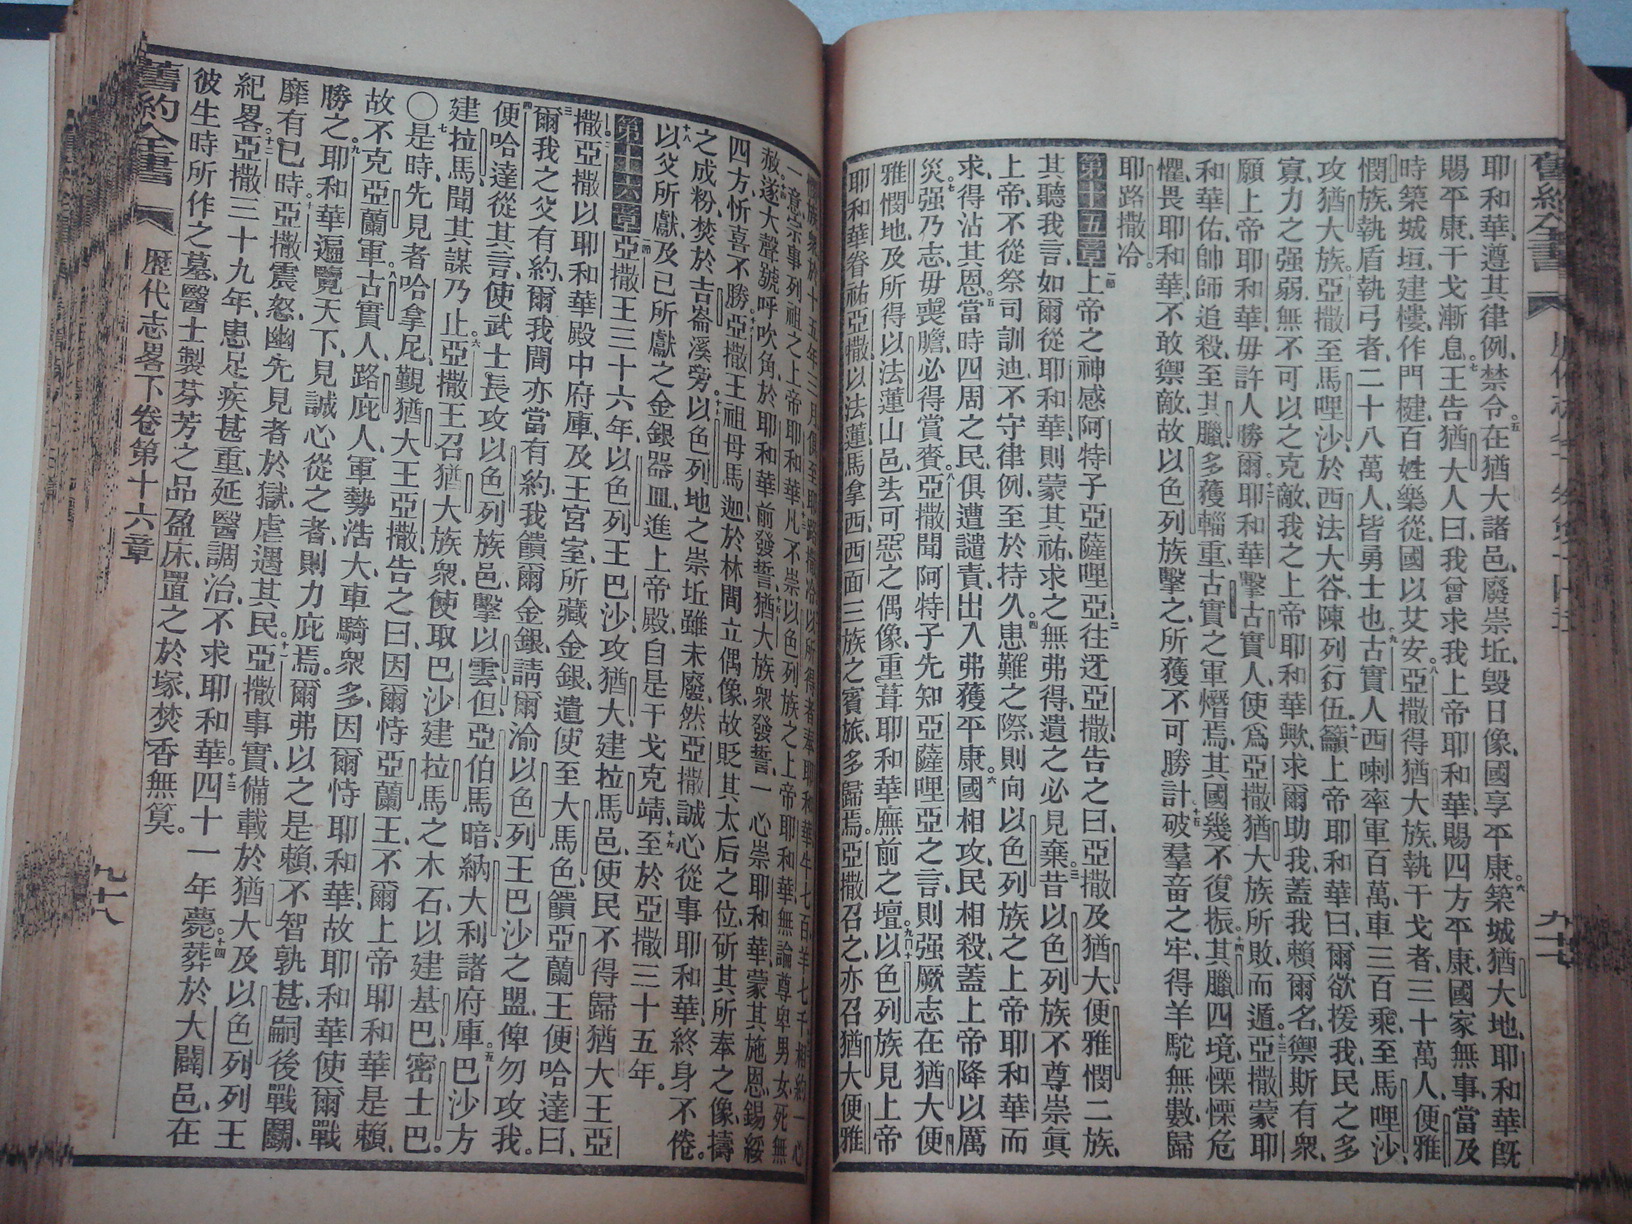 舊約全書
九十七
耶和華遵其律例禁令在猶大諸邑廢崇坵毀日像國享平康築城猶大地耶和華旣
賜平康干戈漸息王告猶大人曰我曾求我上帝耶和華賜四方平康國家無事當及
時築城垣建樓作門楗百姓樂從國以艾安亞撒得猶大族執干戈者三十萬人便雅
憫族執盾執弓者二十八萬人皆勇士也古實人西喇率軍百萬車三百乘至馬哩沙
攻猶大族亞撒至馬哩沙於西法大谷陳列行伍籲上帝耶和華曰爾欲援我民之多
寡力之强弱無不可以之克敵我之上帝耶和華歟求爾助我蓋我賴爾名禦斯有衆
願上帝耶和華毋許人勝爾耶和華擊古實人使爲亞撒猶大族所敗而遁亞撒蒙耶
和華佑帥師追殺至其臘多獲輜重古實之軍熸焉其國幾不復振其臘四境慄慄危
懼畏耶和華不敢禦敵故以色列族擊之所獲不可勝計破羣畜之牢得羊駝無數歸
耶路撒冷
第十五章上帝之神感阿特子亞薩哩亞往迓亞撒告之曰亞撒及猶大便雅憫二族
其聽我言如爾從耶和華則蒙其祐求之無弗得遺之必見棄昔以色列族不尊崇眞
上帝不從祭司訓迪不守律例至於持久患難之際則向以色列族之上帝耶和華而
求得沾其恩當時四周之民俱遭譴責出入弗獲平康國相攻民相殺蓋上帝降以厲
災强乃志毋喪膽必得賞賚亞撒聞阿特子先知亞薩哩亞之言則强厥志在猶大便
雅憫地及所得以法蓮山邑去可惡之偶像重葺耶和華廡前之壇以色列族見上帝
耶和華眷祐亞撒以法蓮馬拿西西面三族之賓旅多歸焉亞撒召之亦召猶大便雅
一意崇事列祖之上帝耶和華凡不崇以色列族之上帝耶和華無論尊卑男女死無
赦遂大聲號呼吹角於耶和華前發誓猶大族衆發誓一心崇耶和華蒙其施恩錫綏
四方忻喜不勝亞撒王祖母馬迦於林間立偶像故貶其太后之位斫其所奉之像擣
之成粉焚於吉崙溪旁以色列地之崇坵雖未廢然亞撒誠心從事耶和華終身不倦
以父所獻及已所獻之金銀器皿進上帝殿自是干戈克靖至於亞撒三十五年
第十六章亞撒王三十六年以色列王巴沙攻猶大建拉馬邑使民不得歸猶大王亞
撒亞撒以耶和華殿中府庫及王宮室所藏金銀遣使至大馬色饋亞蘭王便哈達曰
爾我之父有約爾我間亦當有約我饋爾金銀請爾渝以色列王巴沙之盟俾勿攻我
便哈達從其言使武士長攻以色列族邑擊以雲但亞伯馬暗納大利諸府庫巴沙方
建拉馬聞其謀乃止亞撒王召猶大族衆使取巴沙建拉馬之木石以建基巴密士巴
○是時先見者哈拿尼覲猶大王亞撒告之曰因爾恃亞蘭王不爾上帝耶和華是賴
故不克亞蘭軍古實人路庇人軍勢浩大車騎衆多因爾恃耶和華故耶和華使爾戰
勝之耶和華遍覽天下見誠心從之者則力庇焉爾弗以之是賴不智孰甚嗣後戰鬬
靡有已時亞撒震怒幽先見者於獄虐遇其民亞撒事實備載於猶大及以色列列王
紀畧亞撒三十九年患足疾甚重延醫調治不求耶和華四十一年薨葬於大闢邑在
彼生時所作之墓醫士製芬芳之品盈床置之於塚焚香無算
舊約全書
歷代志畧下卷第十六章
九十八